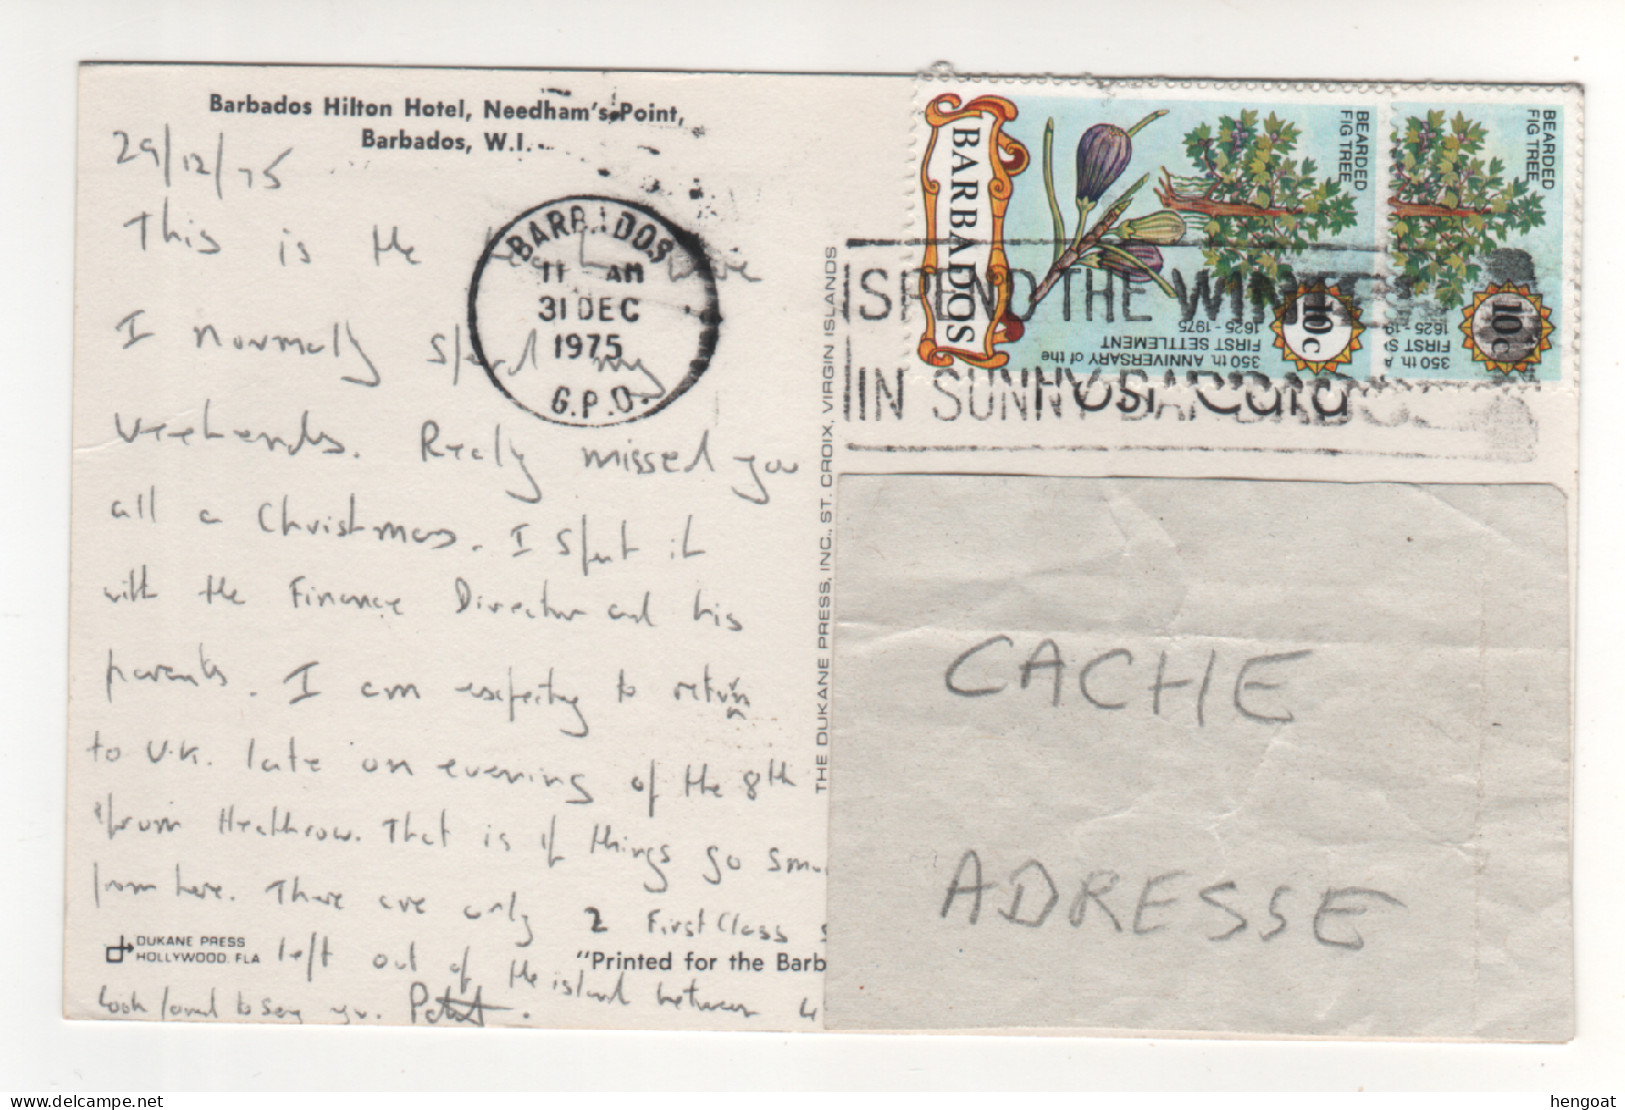 Barbados Hilton Hotel, Needham's Point,
Barbados, W.I.
29/12/75
This is the where
I normally spend my
weekends. Realy missed you
all a Christmas. I spent it
with the Finance Director and his
parents. I am expecting to return
to U.K. late on evening of the 8th
from Heathrow. That is if things go
from here. There are only 2 First Class
left out of the island between 4
look forward to seeing you.
BARBADOS
11 AM
31 DEC
1975
G.P.O.
DUKANE PRESS
HOLLYWOOD, FLA
"Printed for the Barb
THE DUKANE PRESS, INC., ST. CROIX, VIRGIN ISLANDS
BARBADOS
BEARDED
FIG TREE
350 th. ANNIVERSARY of the
FIRST SETTLEMENT
1625 - 1975
10c
BEARDED
FIG TREE
350 th. A
FIRST S
1625 - 19
10c
SPEND THE WINTER
IN SUNNY BARBADOS
Post Card
CACHE
ADRESSE
hengoat